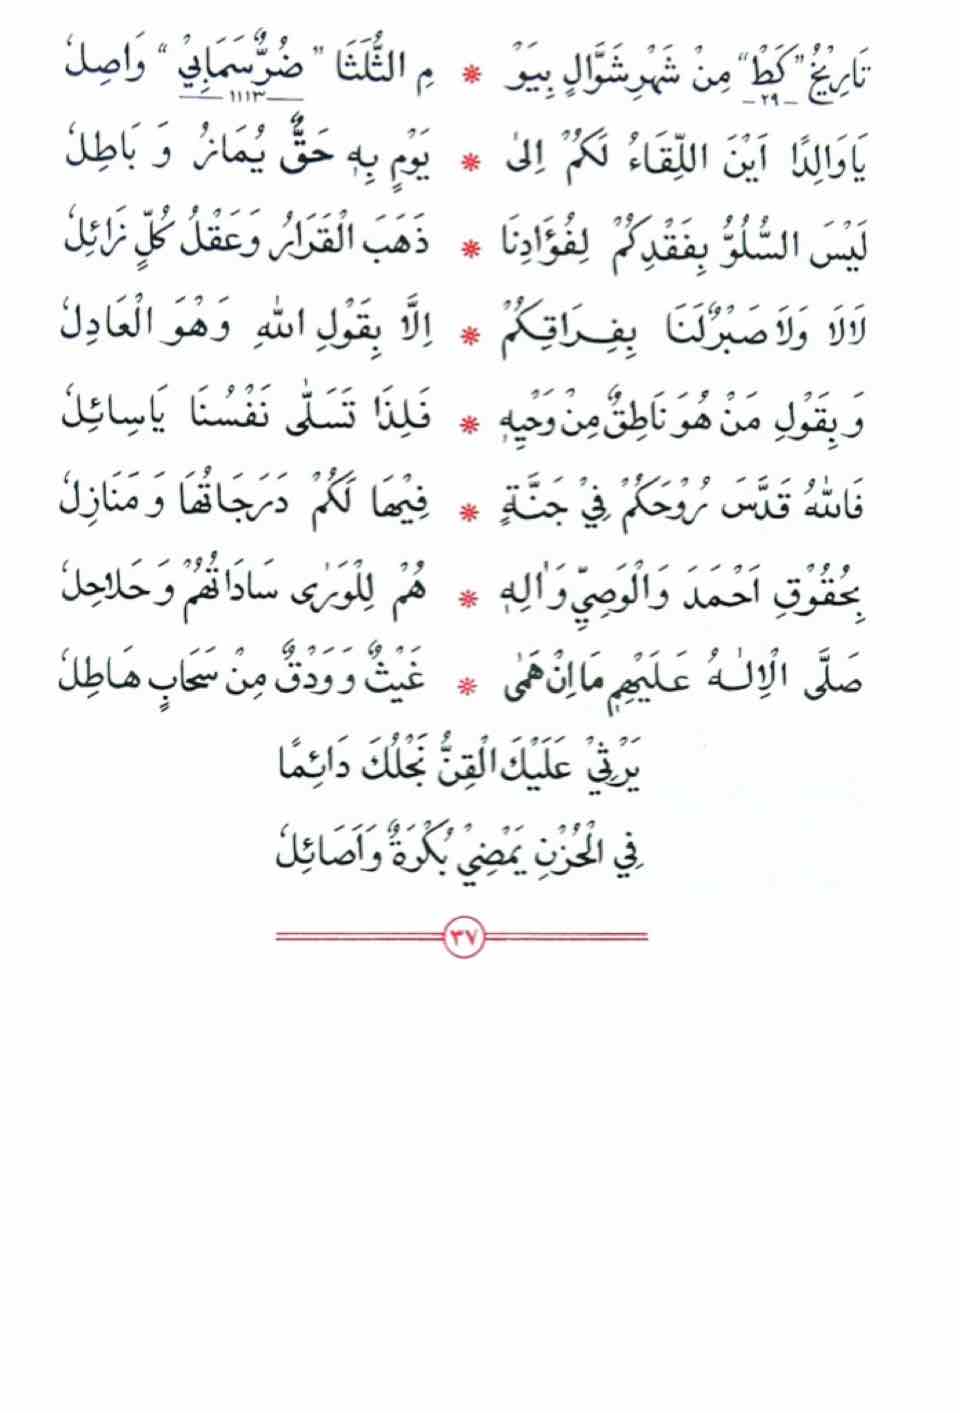 تَارِيْخُ "كَطْ" مِنْ شَهْرِ شَوَّالٍ بِيَوْ * مِ الثُّلَثَا "ضُرٌّ سَمَابِيْ" وَاصِلُ
ـ٢٩ـ ١١١٣
يَا وَالِدًا اَيْنَ اللِّقَاءُ لَكُمْ اِلىٰ * يَوْمٍ بِهٖ حَقٌّ يُمَازُ وَ بَاطِلُ
لَيْسَ السُّلُوُّ بِفَقْدِكُمْ لِفُؤَادِنَا * ذَهَبَ الْقَرَارُ وَعَقْلُ كُلٍّ زَائِلُ
لَالَا وَلَا صَبْرٌ لَنَا بِفِرَاقِكُمْ * اِلَّا بِقَوْلِ اللهِ وَهْوَ الْعَادِلُ
وَ بِقَوْلِ مَنْ هُوَ نَاطِقٌ مِنْ وَحْيِهٖ * فَلِذَا تَسَلّٰى نَفْسُنَا يَاسِائِلُ
فَاللهُ قَدَّسَ رُوْحَكُمْ فِيْ جَنَّةٍ * فِيْهَا لَكُمْ دَرَجَاتُهَا وَ مَنَازِلُ
بِحُقُوْقِ اَحْمَدَ وَالْوَصِيِّ وَاٰلِهٖ * هُمْ لِلْوَرٰى سَادَاتُهُمْ وَ حَلَاحِلُ
صَلَّى الْاِلٰهُ عَلَيْهِمِ مَا اِنْ هَمٰى * غَيْثٌ وَ وَدْقٌ مِنْ سَحَابٍ هَاطِلُ
يَرْثِيْ عَلَيْكَ الْقِنُّ نَجْلُكَ دَائِمًا
فِي الْحُزْنِ يَمْضِيْ بُكْرَةٌ وَاَصَائِلُ
٣٧